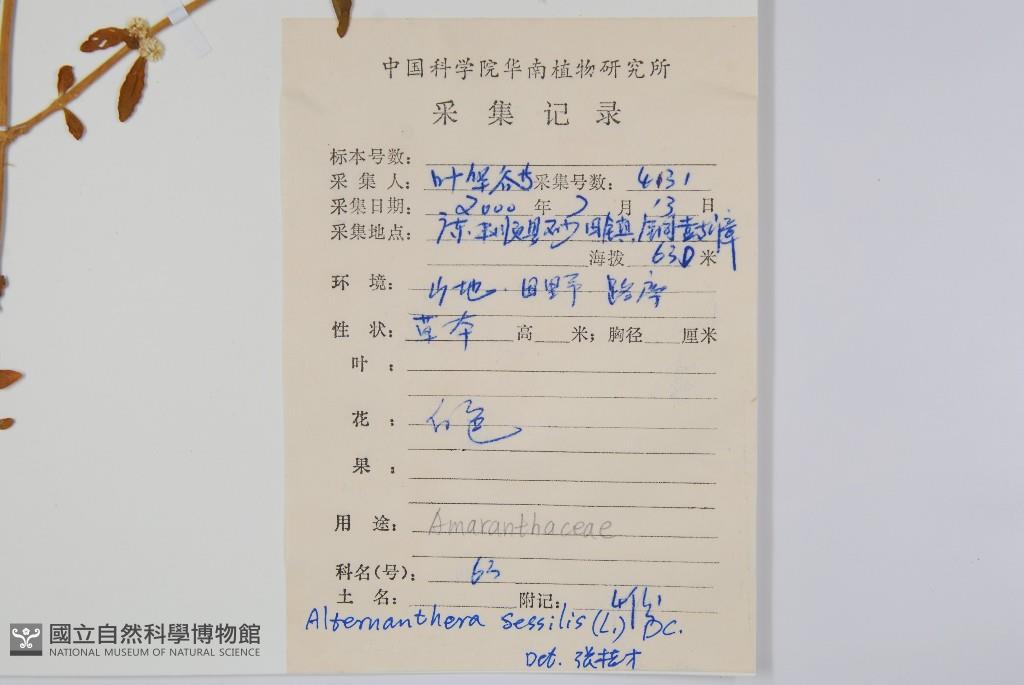 中国科学院华南植物研究所
采集记录
标本号数:
采集人: 叶华谷 采集号数: 4131
采集日期: 2000 年 7 月 13 日
采集地点: 广东.丰顺县砂田镇.铜鼓嶂
海拨 630 米
环境: 山地.田野 路旁
性状: 草本 高 米; 胸径 厘米
叶:
花: 白色
果:
用途: Amaranthaceae
科名(号): 63
土名: 附记:
Alternanthera sessilis (L.) DC.
Det. 张桂才
國立自然科學博物館
NATIONAL MUSEUM OF NATURAL SCIENCE